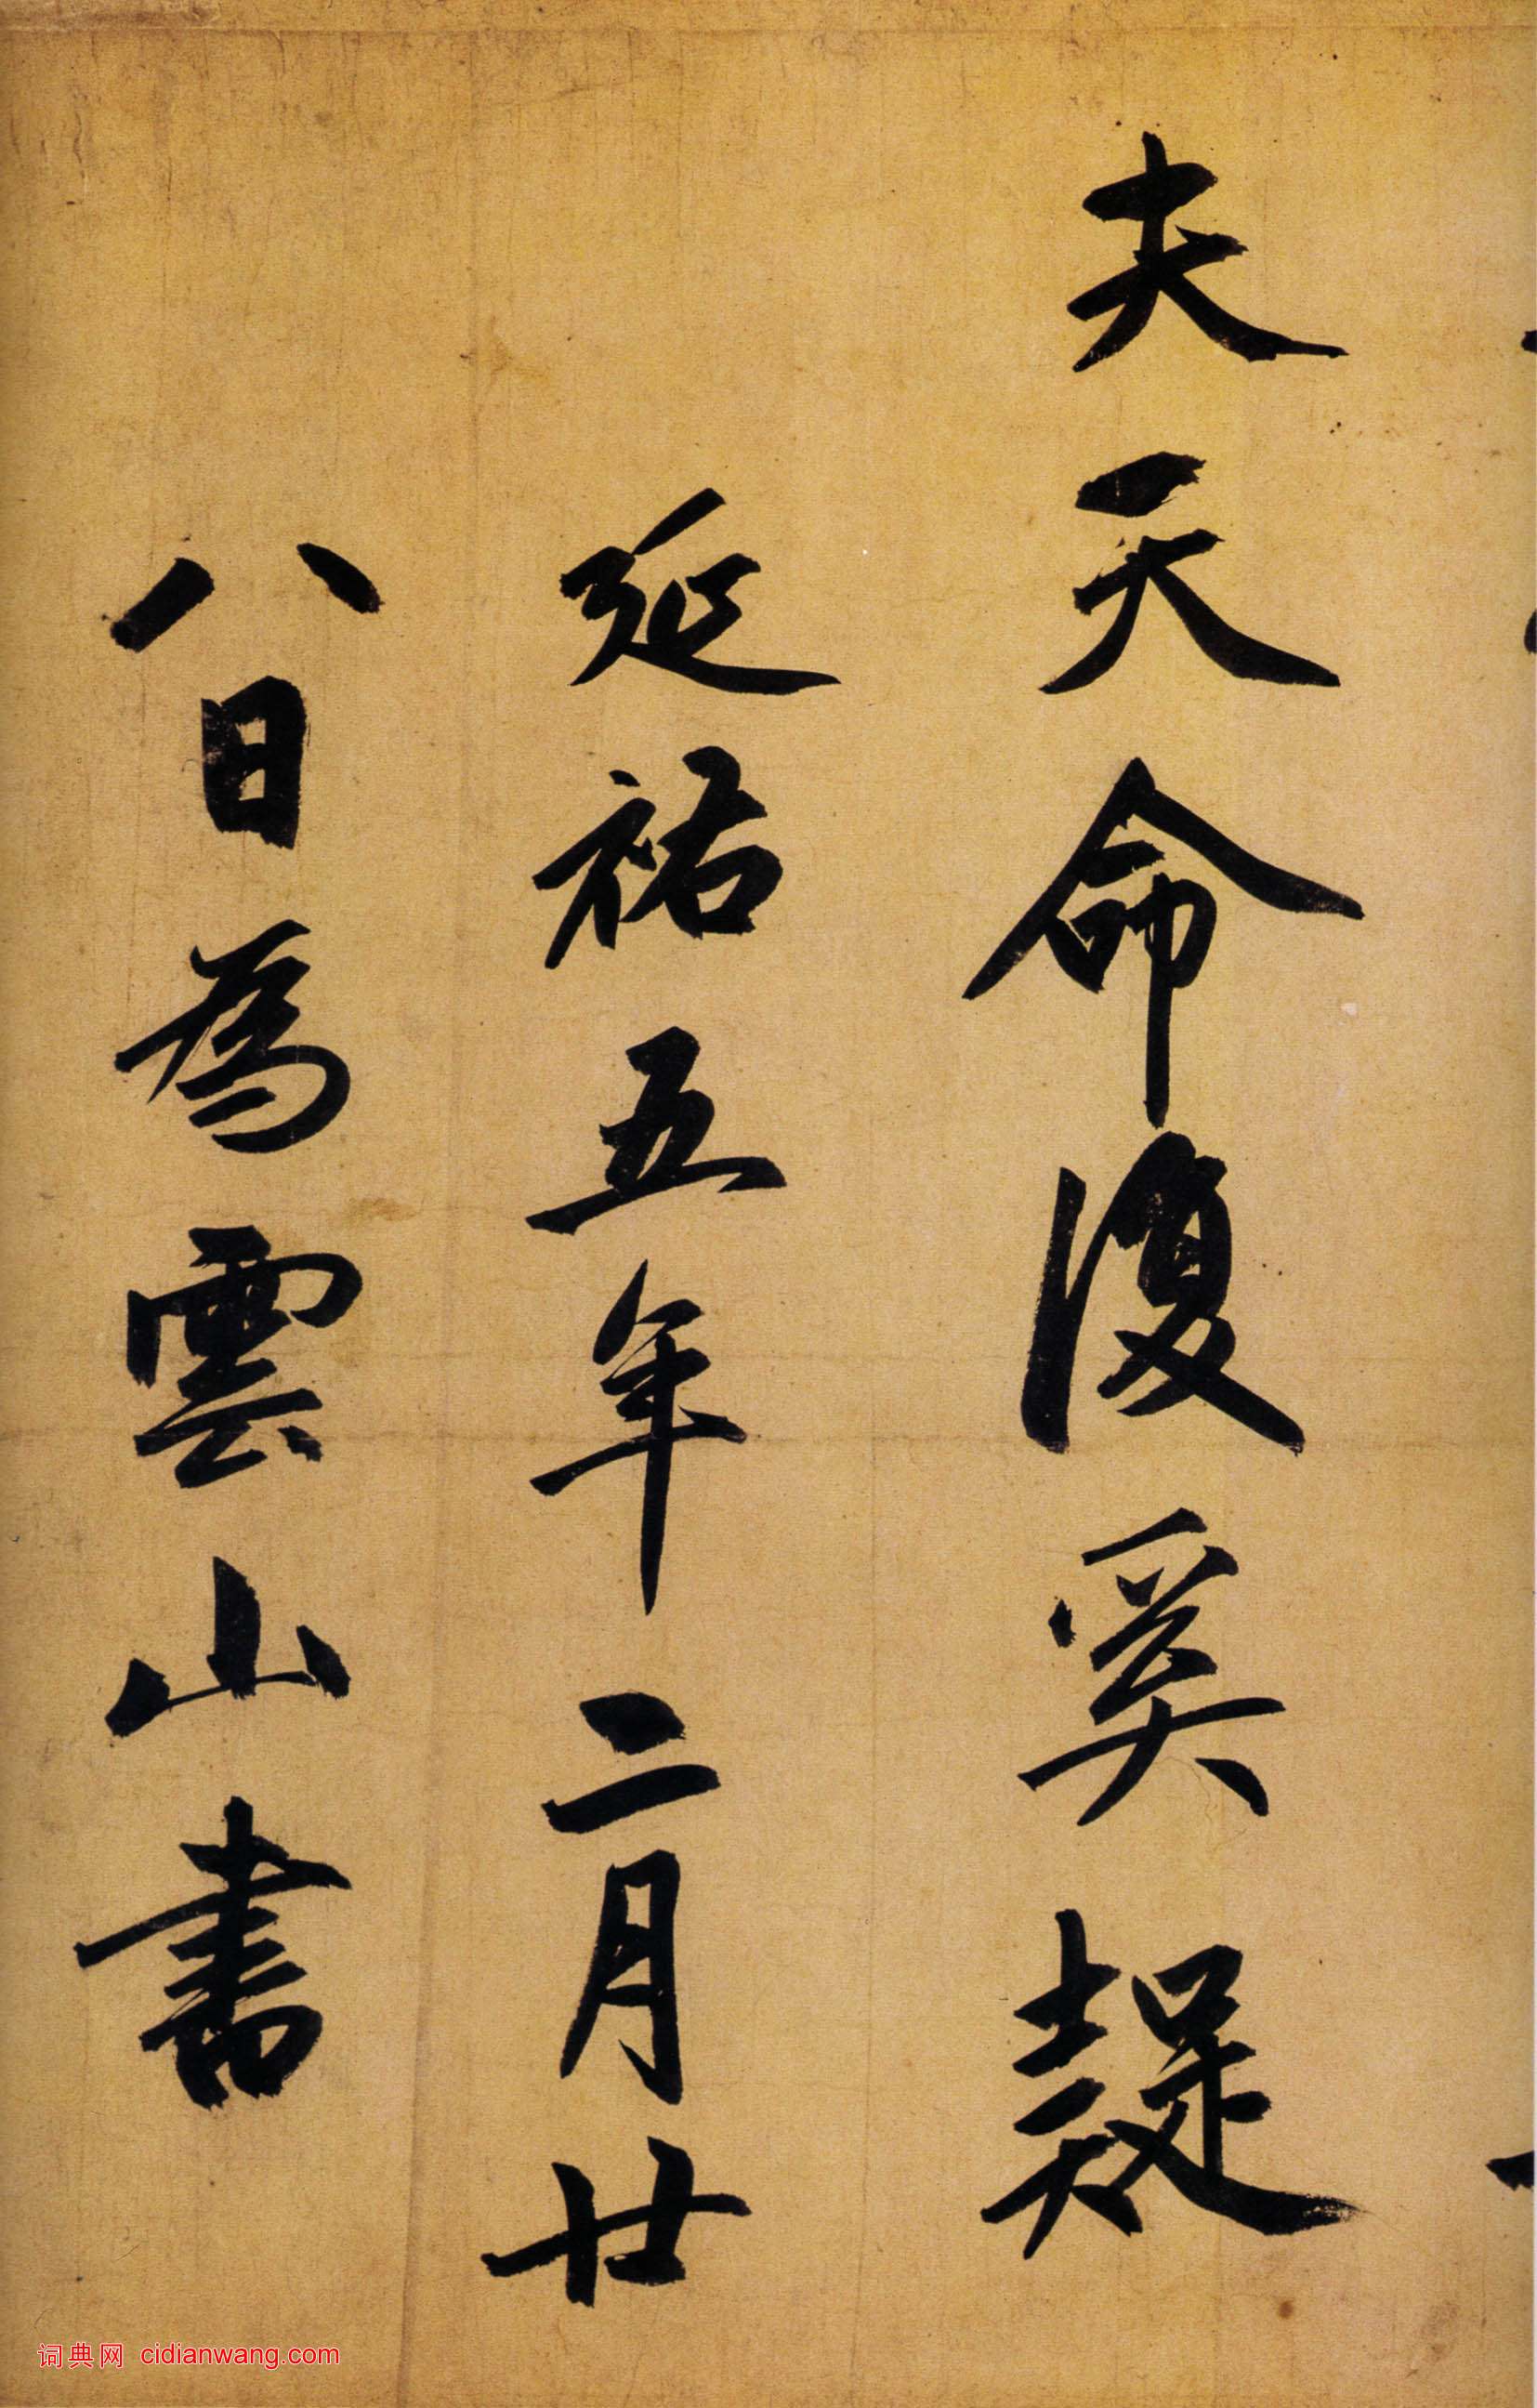 夫天命復奚疑
延祐五年二月廿
八日為雲山書
词典网 cidianwang.com